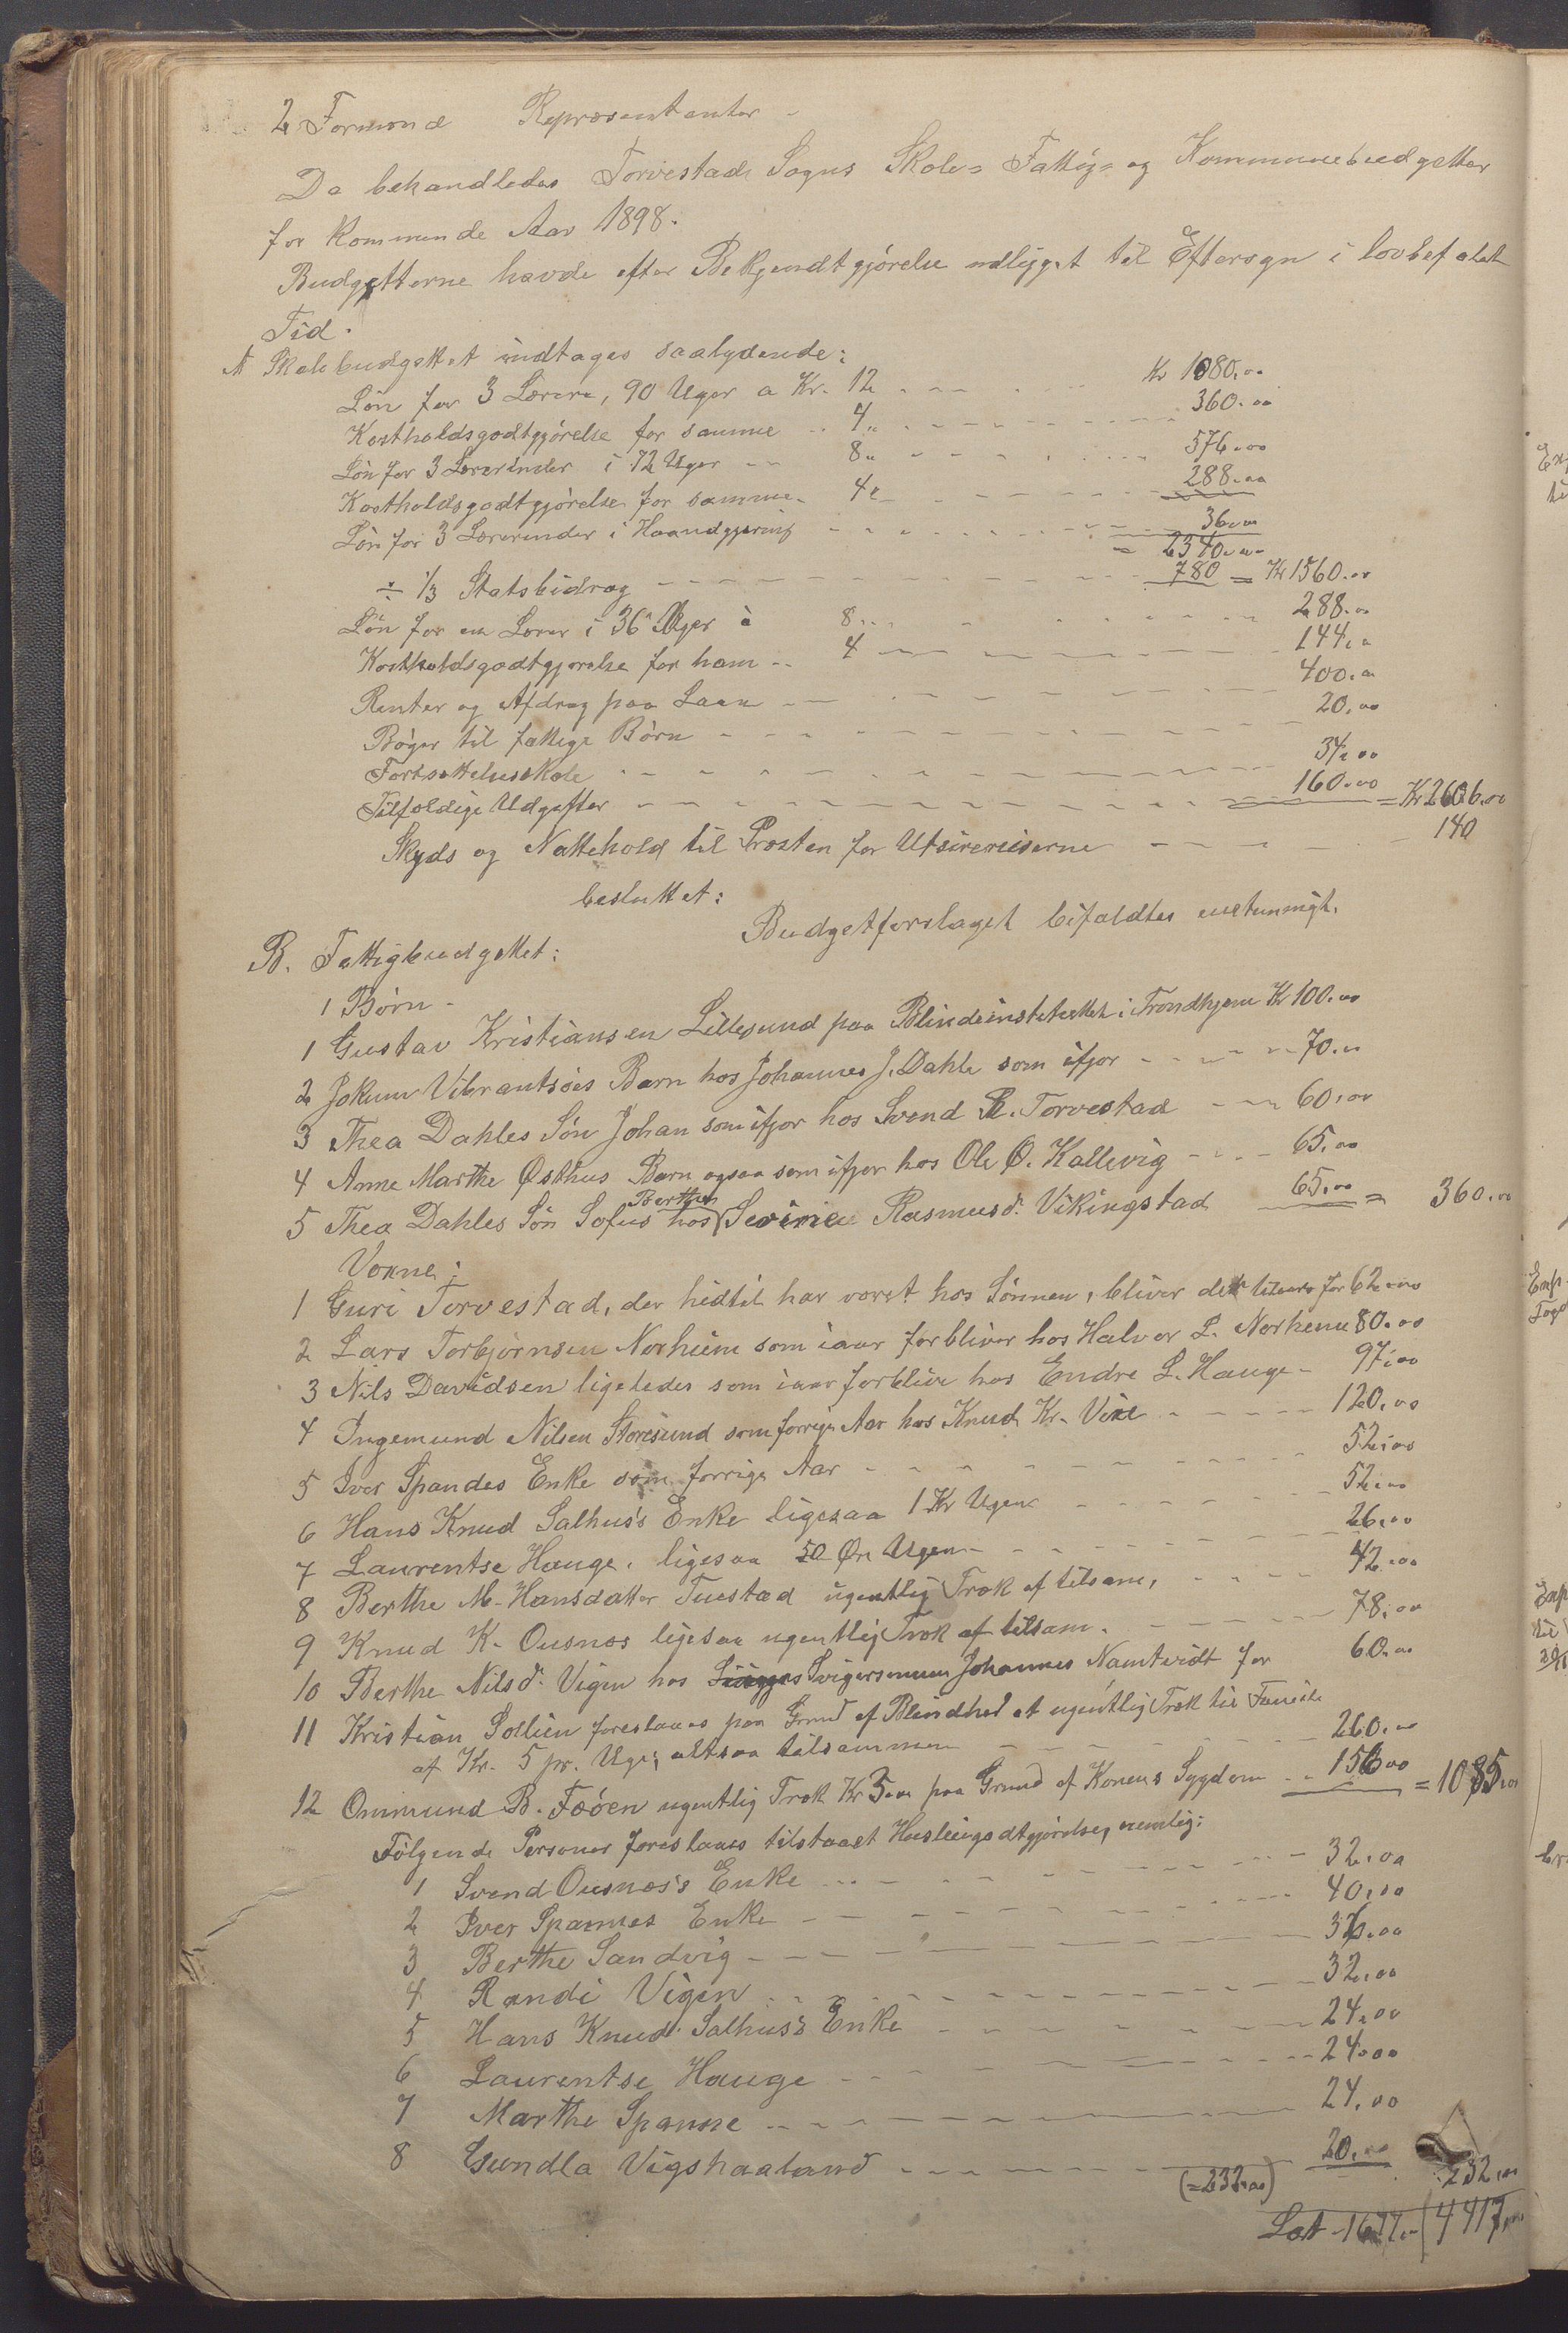 2 Formænd Repræsentanter -
Da behandledes Torvestads Sogns Skole- Fattig- og Kommunebudgetter
for kommende Aar 1898.
Budgetterne havde efter Bekjendtgjørelse udligget til Eftersyn i lovbefalet
Tid.
A Skolebudgettet indtages saalydende:
Løn for 3 Lærere, 90 Uger a Kr. 12 - - - Kr 1080.00
Kostholdsgodtgjørelse for samme - 4 " - - - 360.00
Løn for 3 Lærerinder i 72 Uger - 8 " - - - 576.00
Kostholdsgodtgjørelse for samme - 4 - - - 288.00
Løn for 3 Lærerinder i Haandgjerning - - - 36.00
= 2340.00
÷ 1/3 Statsbidrag - - - 780 = Kr 1560.00
Løn for en Lærer i 36 Uger à 8 - - - 288.00
Kostholdsgodtgjørelse for ham - 4 - - - 144.00
Renter og Afdrag paa Laan - - - 400.00
Bøger til fattige Børn - - - 20.00
Fortsættelsesskole - - - 34.00
Tilfældige Udgifter - - - 160.00 = Kr 2606.00
Skyds og Nattehold til Presten for Utsirereiserne - - - 140
besluttet:
Budgetforslaget bifaldtes enstemmigt.
B. Fattigbudgettet:
1 Børn -
1 Gustav Kristiansen Lillesund paa Blindeinstituttet i Trondhjem Kr 100.00
2 Jokum Vibrantsøes Barn hos Johannes J. Dahle som ifjor - - - 70.00
3 Thea Dahles Søn Johan som ifjor hos Svend R. Torvestad - - - 60.00
4 Anne Marthe Østhus Barn ogsaa som ifjor hos Ole O. Kallevig - - - 65.00
5 Thea Dahles Søn Sofus hos Berthe Sevine Rasmusd. Vikingstad 65.00 = 360.00
Voxne:
1 Guri Torvestad, der hidtil har været hos Sønnen, bliver der for 62.00
2 Lars Torbjørnsen Norheim som iaar forbliver hos Halvor L. Norheim 80.00
3 Nils Davidsen ligeledes som iaar forblive hos Endre L. Hauge - 97.00
4 Ingemund Nilsen Storesund som forrige Aar hos Knud Kr. Vike - - - 120.00
5 Iver Spandes Enke som forrige Aar - - - 52.00
6 Hans Knud Salhus's Enke ligesaa 1 Kr Ugen - - - 52.00
7 Laurentse Hauge, ligesaa 50 Øre Ugen - - - 26.00
8 Berthe M. Hansdatter Tuestad ugentlig Træk af tilsam. - - - 42.00
9 Knud K. Ousnes ligesaa ugentlig Træk af tilsam. - - - 78.00
10 Berthe Nilsd. Vigen hos Svigersønnen Johannes Namtvedt for 60.00
11 Kristian Sollien foreslaaes paa Grund af Blindhed et ugentlig Træk til Familie
af Kr. 5 pr. Uge, altsaa tilsammen - - - 260.00
12 Ommund B. Fæøen ugentlig Træk Kr 3.00 paa Grund af Konens Sygdom - - 156.00 = 1085.00
Følgende Personer foreslaaes tilstaaet Husleiegodtgjørelse, nemlig:
1 Svend Ousnes's Enke - - - 32.00
2 Iver Spannes Enke - - - 40.00
3 Berthe Sandvig - - - 36.00
4 Randi Vigen - - - 32.00
5 Hans Knud Salhus's Enke - - - 24.00
6 Laurentse Hauge - - - 24.00
7 Marthe Spanne - - - 24.00
8 Gundla Vigshaaland - - - 20.00
(=232.00) 232.00
Lat 1677.- 4417.00